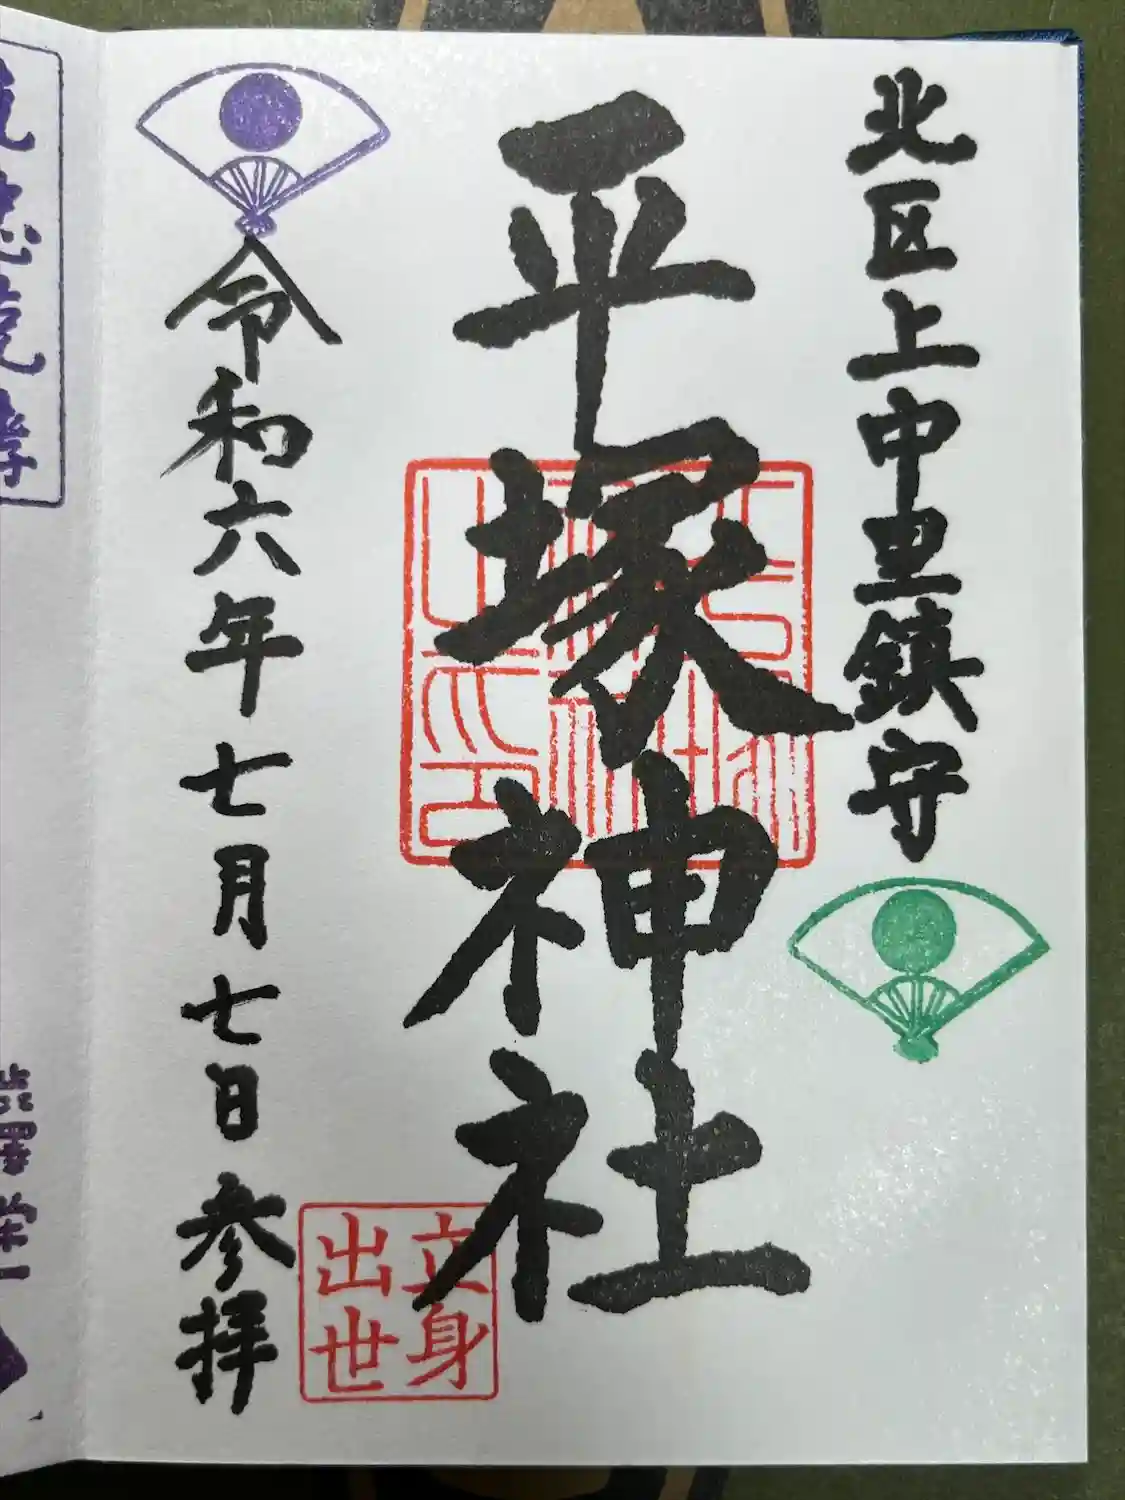 北区上中里鎮守
平塚神社
立身
出世
令和六年七月七日参拝
渋澤栄一